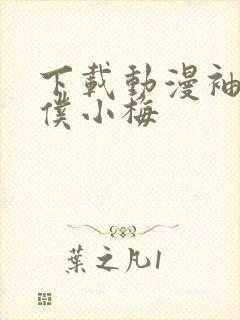 下載動漫袖
僕小梅
葉之凡1